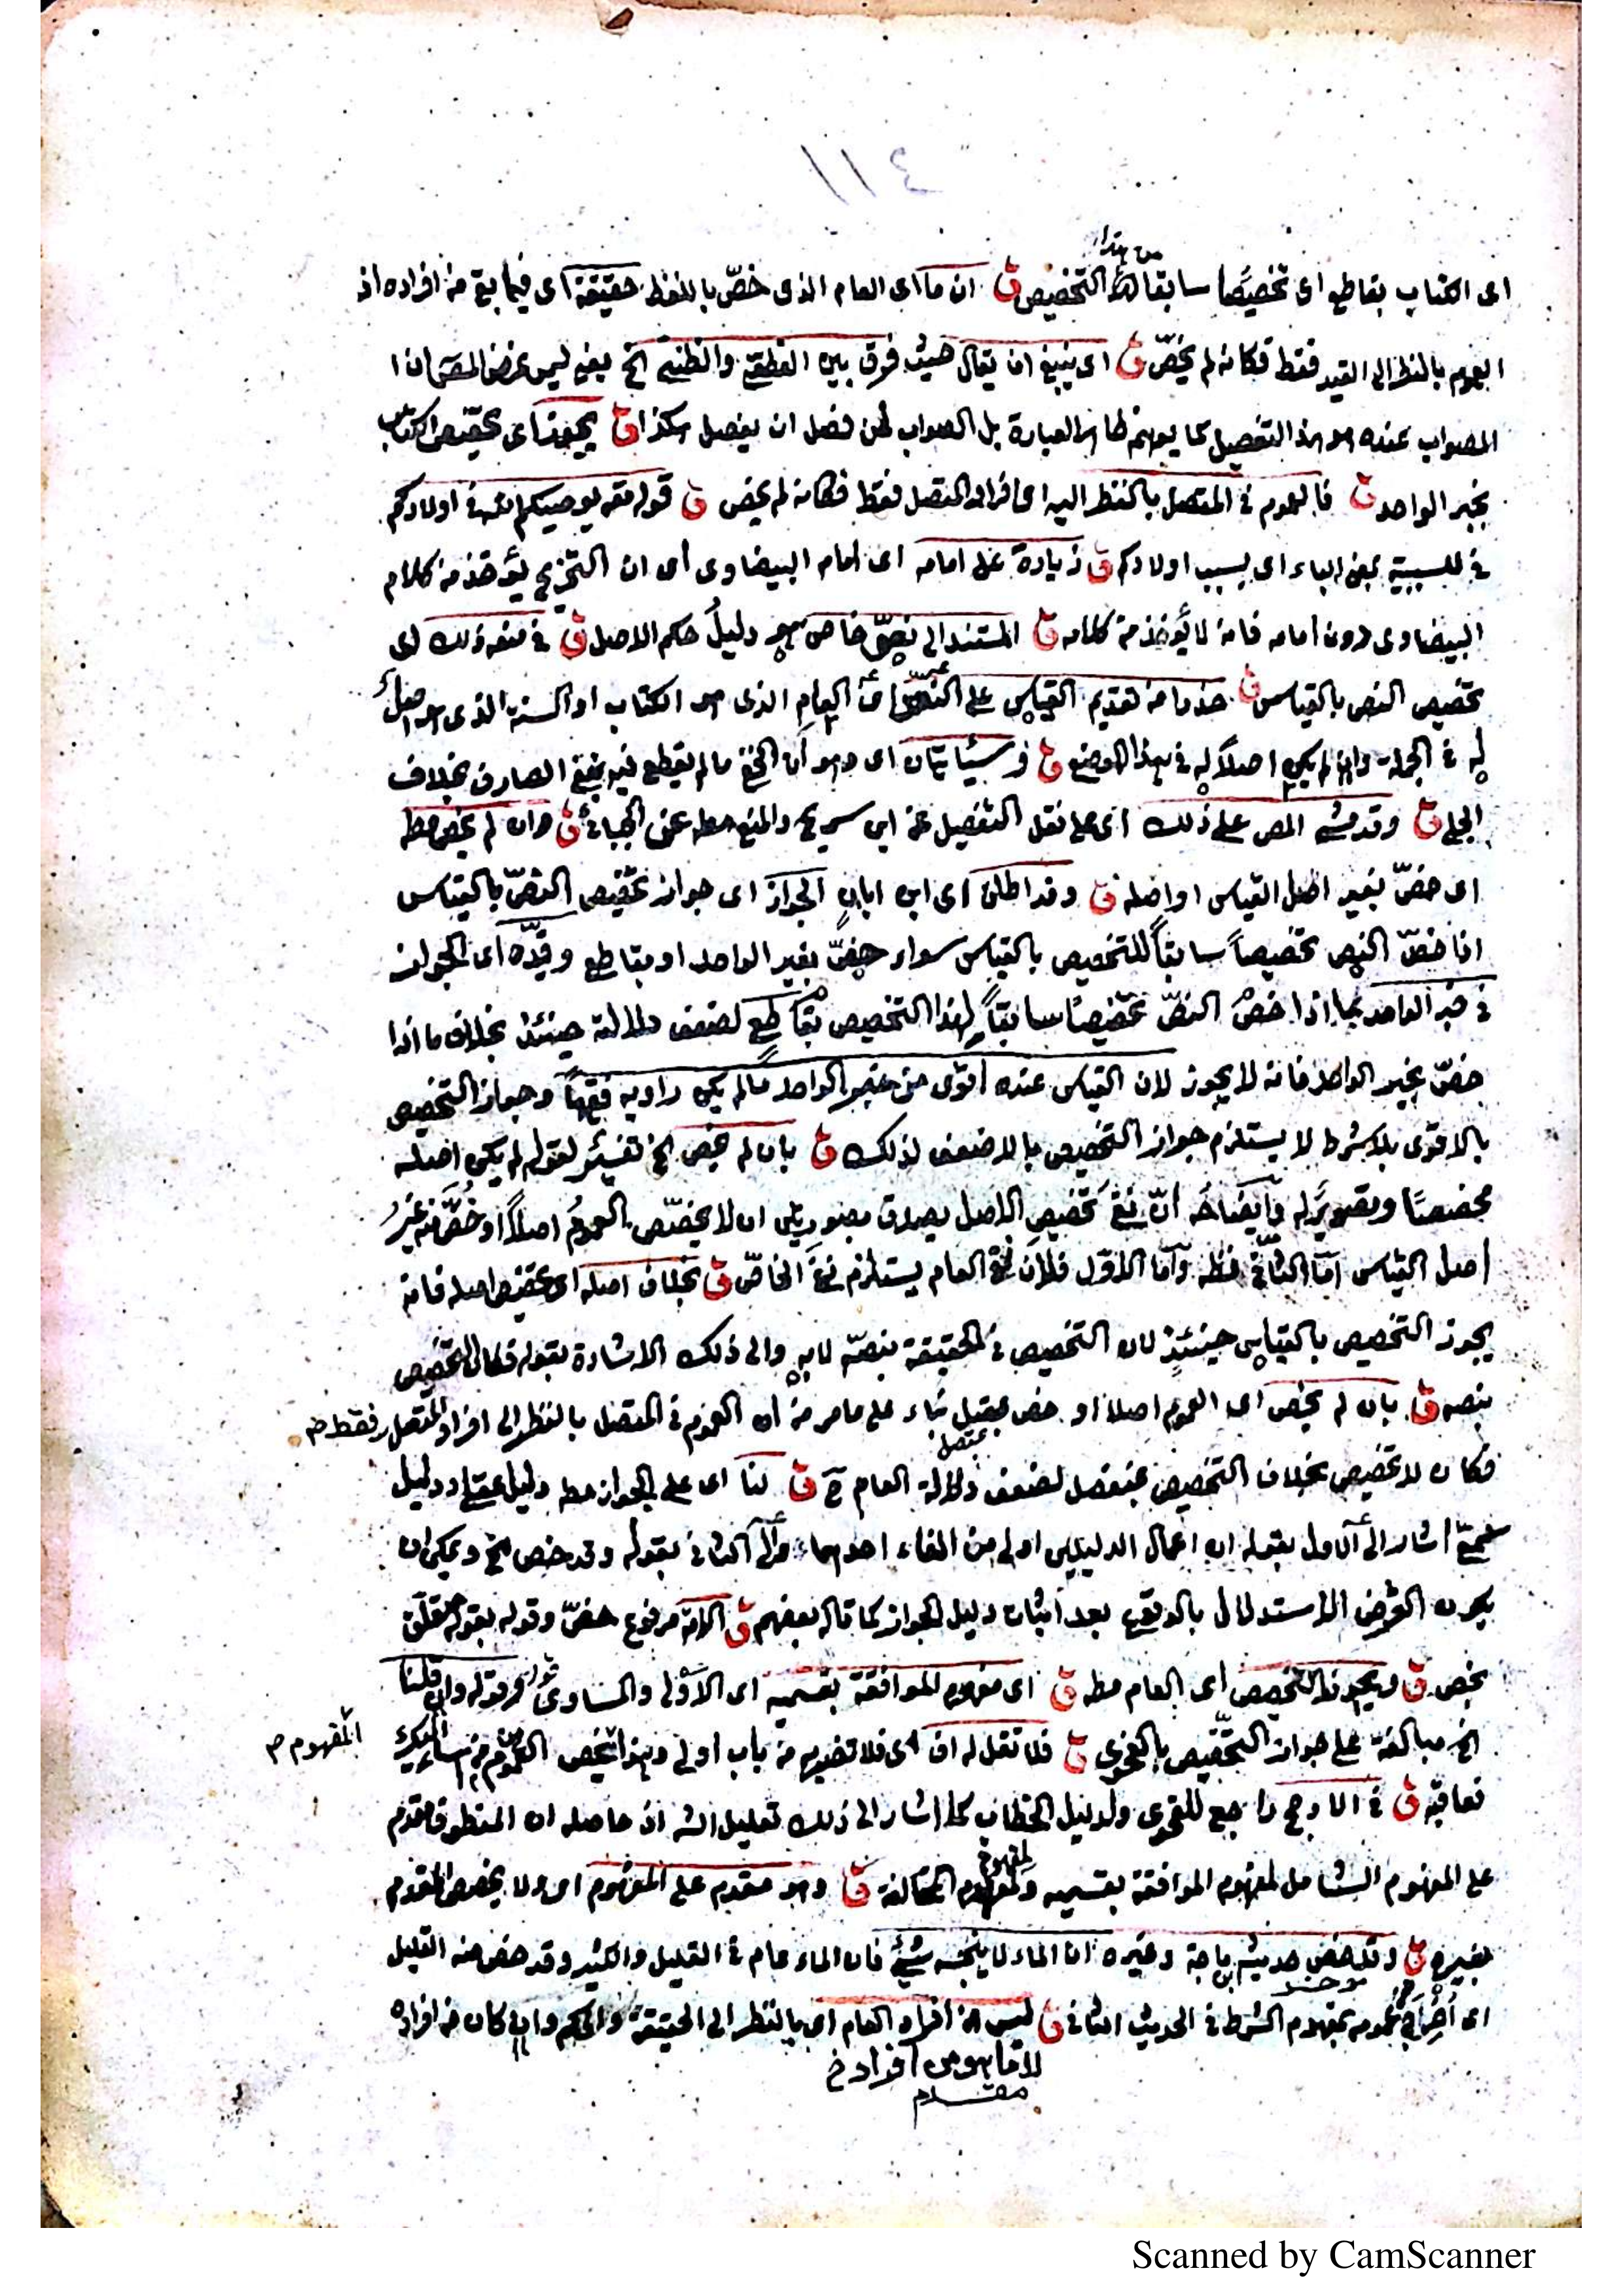 ١١٤
من هذا
اى الكتاب بقاطع اى تخصيصًا سابقا لهذا التخصيص ق ان ما اى العام الذى خصّ باللفظ حقيقة اى فيما بقى من افراده اذ
العموم بالنظر الى القيد فقط فكانه لم يخصّ ق اى ينبغى ان يقال حيث فرق بين القطعى والظنى الخ يعنى ليس غرض المص ان
الصواب عنده هو هذا التفصيل كما يوهم ظاهر العبارة بل الصواب لمن فصل ان يفصل هكذا ق يجوز اى تخصيص الكتاب
بخبر الواحد ق فالعموم فى المتصل بالنظر اليه اى افراد المتصل فقط فكانه لم يخص ق قوله تعالى يوصيكم الله فى اولادكم
فى للسببية بمعنى الباء اى بسبب اولادكم ق زيادة على امامه اى امام البيضاوى اى ان التخريج يؤخذ من كلام
البيضاوى دون امامه فانه لا يؤخذ من كلامه ق المستند الى نصّ خاص هو دليل حكم الاصل ق فى منعه ذلك اى
تخصيص النص بالقياس ق حذرا من تقديم القياس على النصّ اى العام الذى هو الكتاب او السنة الذى هو اصل
له فى الجملة وان لم يكن اصلا له فى هذا الموضع ق وسيأتيان اى وهو ان الخفى ما لم يقطع فيه بنفى الفارق بخلاف
الجلى ق وقد مشى المص على ذلك اى على نقل التفصيل عن ابن سريج والمنع مطلقا عن الجبائى ق وان لم يخص مطلقا
اى خصّ بغير اصل القياس او اصله ق وقد اطلق اى ابن ابان الجواز اى جواز تخصيص النصّ بالقياس
اذا خصّ النص تخصيصاً سابقاً للتخصيص بالقياس سواء خصّ بخبر الواحد او بقاطع وقيّده اى الجواز
فى خبر الواحد بما اذا خصّ النصّ تخصيصًا سابقاً لهذا التخصيص بقاطع لضعف دلالته حينئذ بخلاف ما اذا
خصّ بخبر الواحد فانه لا يجوز لان القياس عنده اقوى من خبر الواحد ما لم يكن راويه فقيهاً وجواز التخصيص
بالاقوى بلا شرط لا يستلزم جواز التخصيص بالاضعف لذلك ق بان لم يخص الخ تفسير لقوله لم يكن اصله
مخصصًا وتصوير له وايضاحه انّ نفى تخصيص الاصل يصدق بصورتين ان لا يخصّص العموم اصلاً او خصّ منه غير
اصل القياس امّا الثانى فظ وامّا الاوّل فلان نفى العام يستلزم نفى الخاصّ ق بخلاف اصله اى تخصيص اصله فانه
يجوز التخصيص بالقياس حينئذٍ لان التخصيص فى الحقيقة بنصّه لا به والى ذلك الاشارة بقوله فكان التخصيص
بنصه ق بان لم يخص اى العموم اصلا او خص بمتصل بناء على ما مر من ان العموم فى المتصل بالنظر الى افراد المتصل فقط م
بمتصل
فكانه لا تخصيص بخلاف التخصيص بمنفصل لضعف دلالة العام ح ق لنا اى على الجواز مطلقا دليل عقلى ودليل
سمعىّ اشار الى الاول بقوله ان اعمال الدليلين اولى من الغاء احدهما والى الثانى بقوله وقد خص الخ ويمكن ان
يكون الغرض الاستدلال بالوقوع بعد اثبات دليل الجواز كما قاله بعضهم ق الامة مرفوع خصّ وقوله بقوله متعلق
بخص ق ويجوز التخصيص اى العام مطلقا ق اى مفهوم الموافقة بقسميه اى الاولى والمساوى وقوله وان قلنا
الخ مبالغة على جواز التخصيص بالفحوى ق فلا تقل له اف اى فلا تضربه من باب اولى وهذا يخص العموم من اساء اليك
المفهوم م
فعاقبه ق فى الارجح راجع للفحوى ولدليل الخطاب كما اشار الى ذلك تعليل الش اذ حاصله ان المنطوق مقدم
على المفهوم الشامل لمفهوم الموافقة بقسميه ولمفهوم المخالفة ق وهو مقدم على المفهوم اى ولا يخصص المقدم
بغيره ق وقد خص حديث ابن ماجة وغيره ان الماء لا ينجسه شئ فان الماء عام فى القليل والكثير وقد خص منه القليل
اى اُخرج من عمومه بمفهوم الشرط فى الحديث الثانى ق ليس من افراد العام اى بالنظر الى الحقيقة والحكم وان كان من افراده